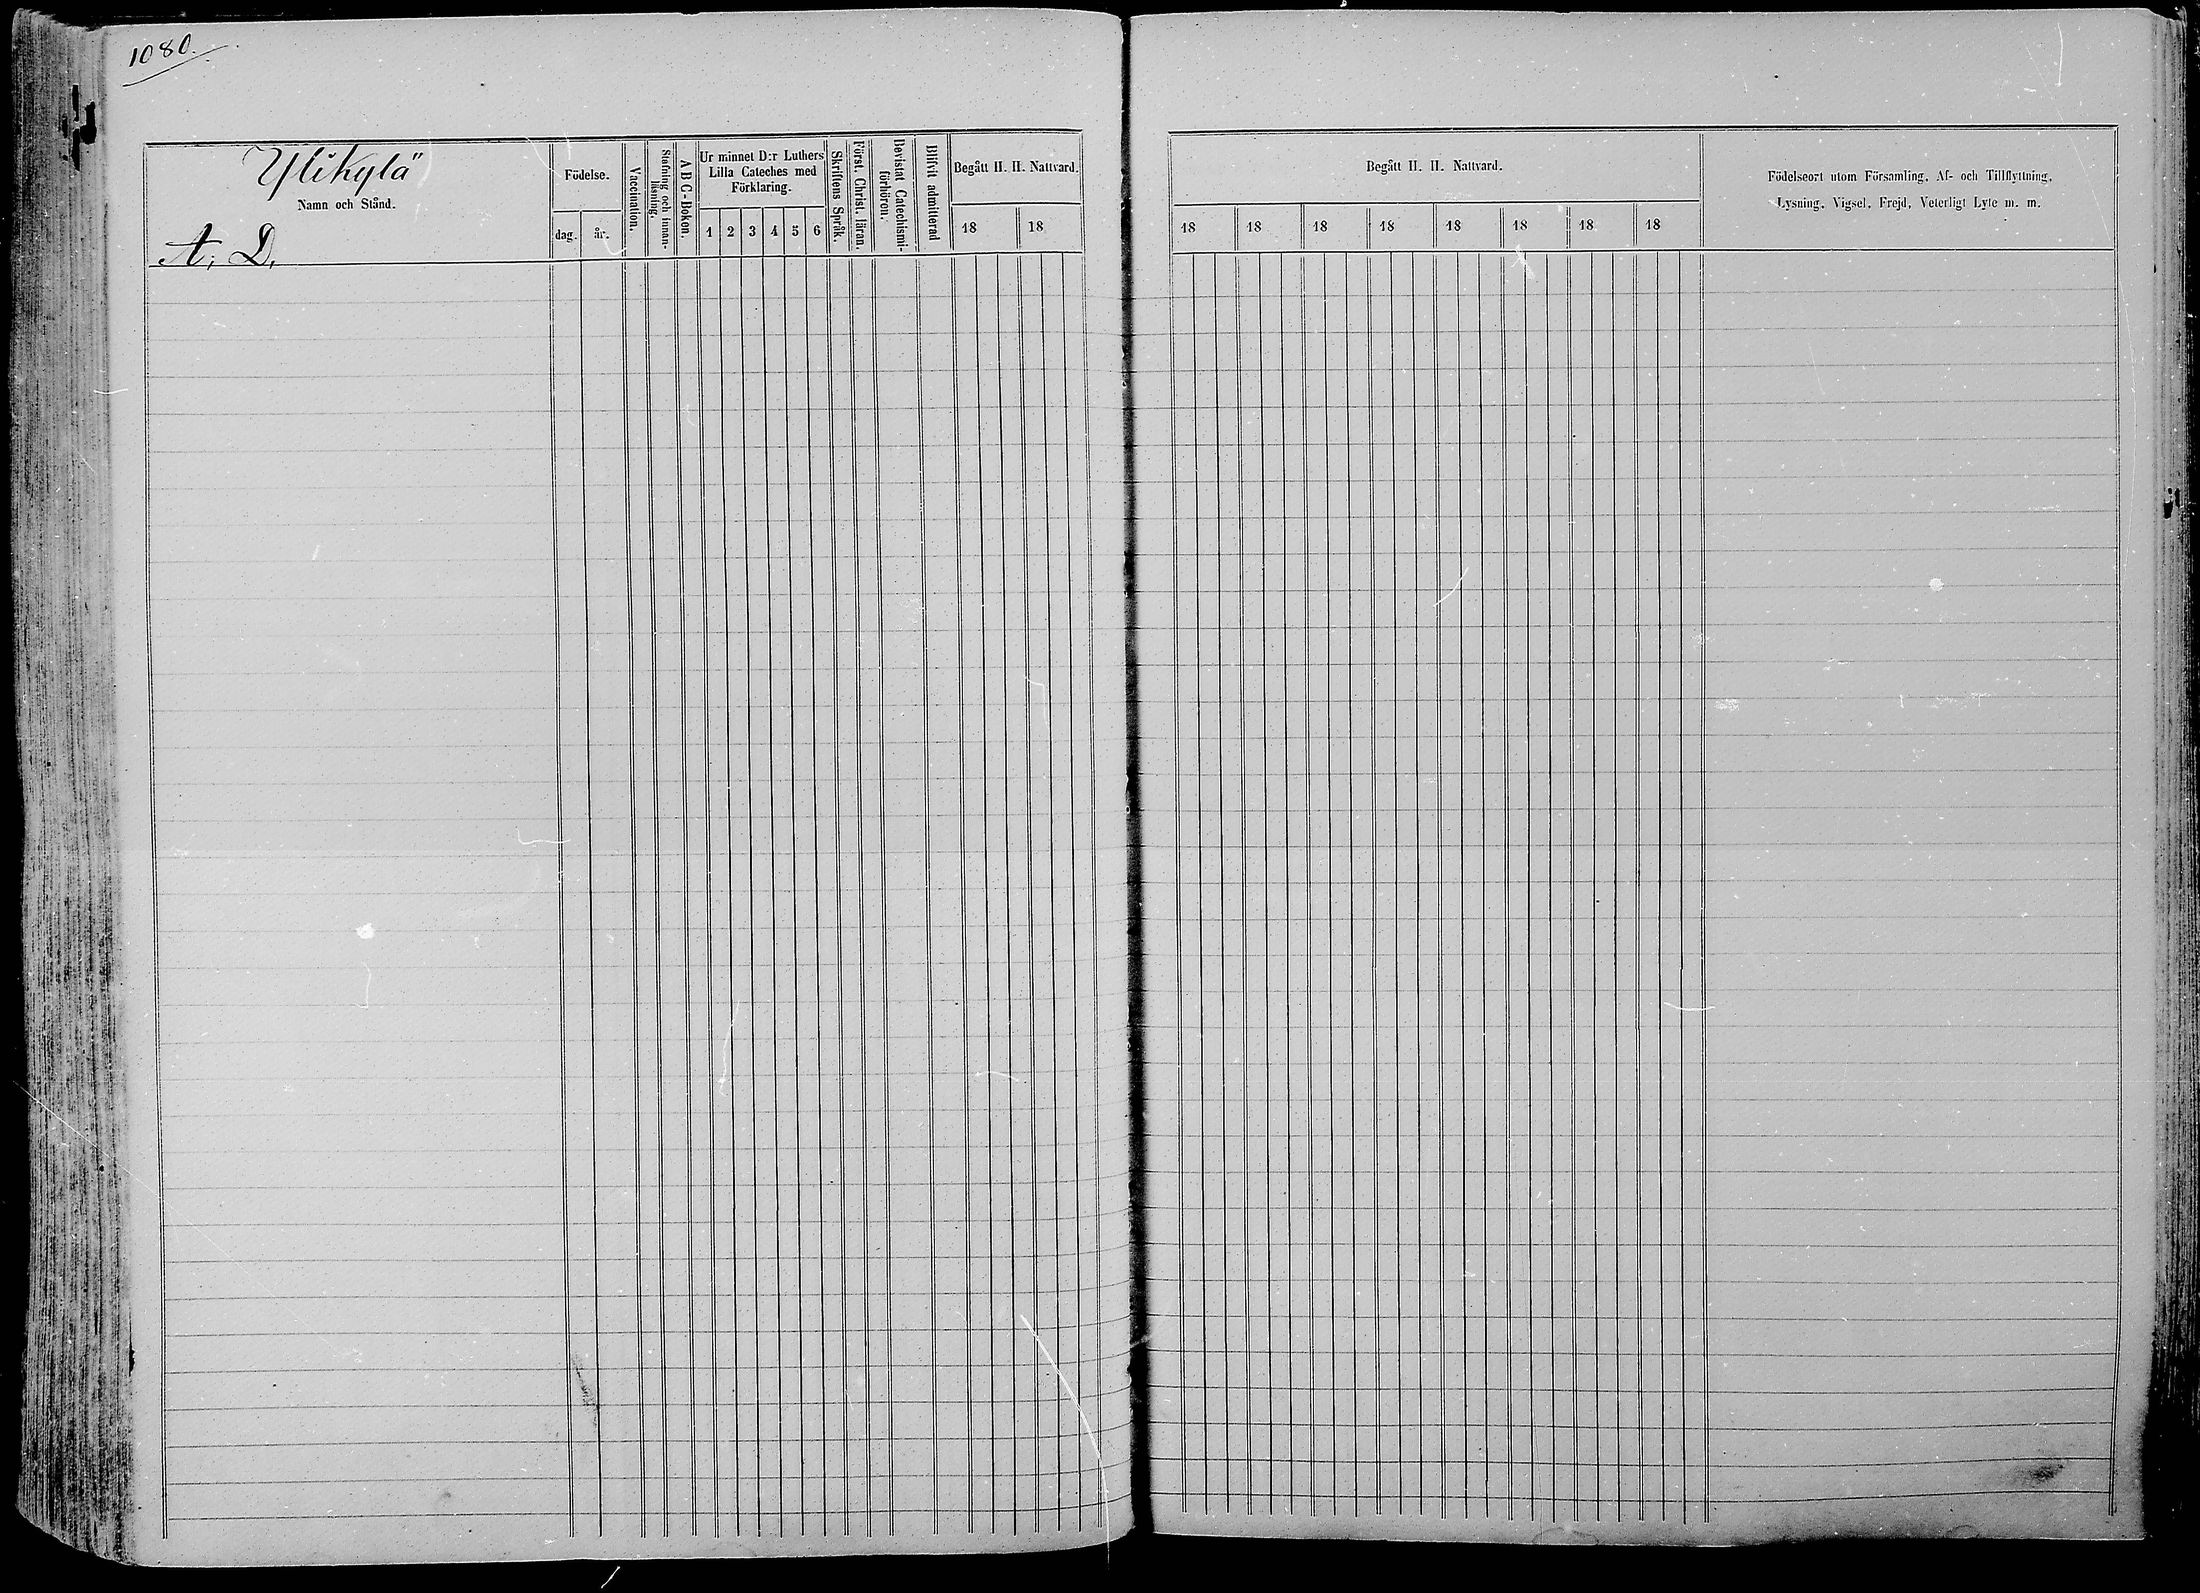 1080.
Ylikylä
Namn och Stånd.
A. D.
Födelse.
dag.
år.
Vaccination.
Stafning och innan-
läsning.
A B C-Boken.
Ur minnet D:r Luthers
Lilla Cateches med
Förklaring.
1 2 3 4 5 6
Skriftens Språk.
Först. Christ. läran.
Bevistat Catechismi-
förhören.
Blifvit admitterad
Begått H. H. Nattvard.
18 18
Begått H. H. Nattvard.
18 18 18 18 18 18 18 18
Födelseort utom Församling, Af- och Tillflyttning,
Lysning, Vigsel, Frejd, Veterligt Lyte m. m.